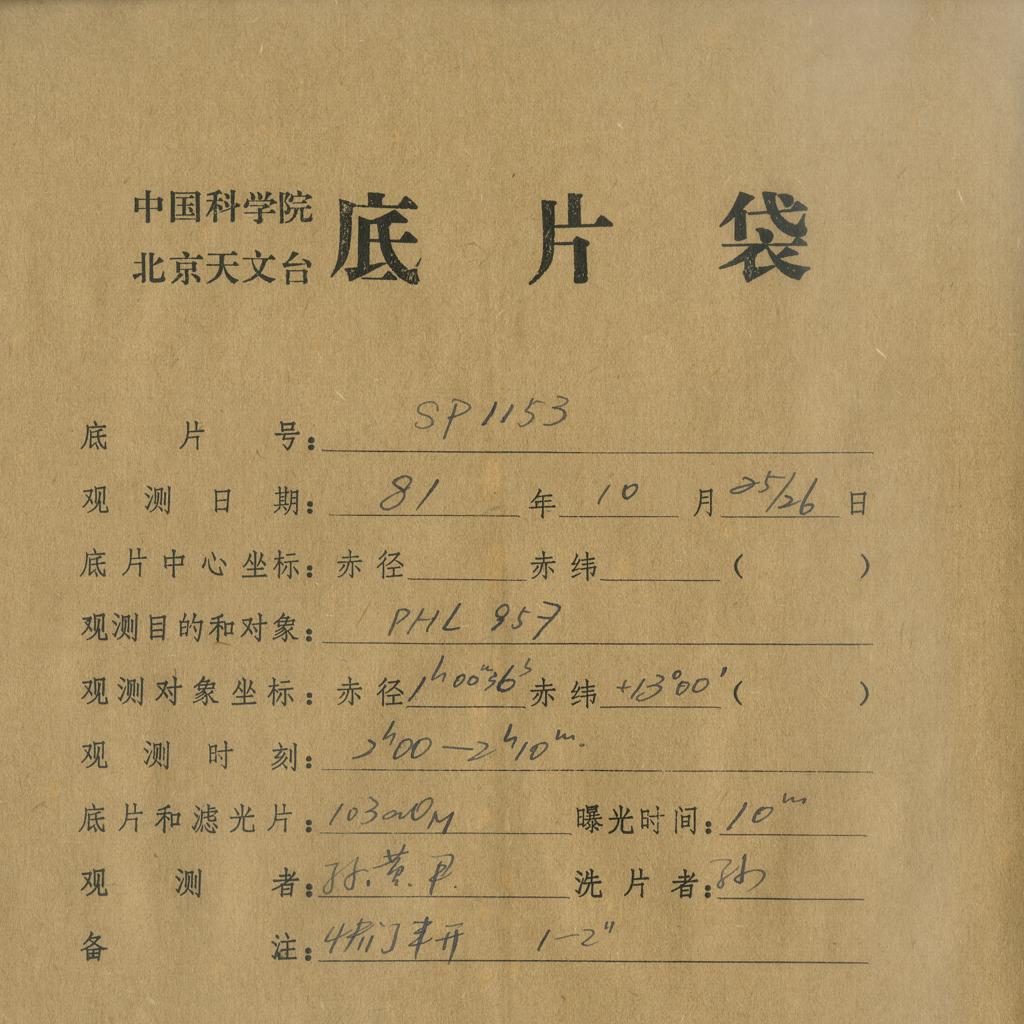 中国科学院
北京天文台
底片袋
底片号：SP1153
观测日期：81年10月25/26日
底片中心坐标：赤径 赤纬 （ ）
观测目的和对象：PHL 957
观测对象坐标：赤径1ʰ00ᵐ36ˢ赤纬+13°00′（ ）
观测时刻：2ʰ00—2ʰ10ᵐ
底片和滤光片：103aO 曝光时间：10ᵐ
观测者：孙.黄. 洗片者：孙
备注：快门未开 1-2"